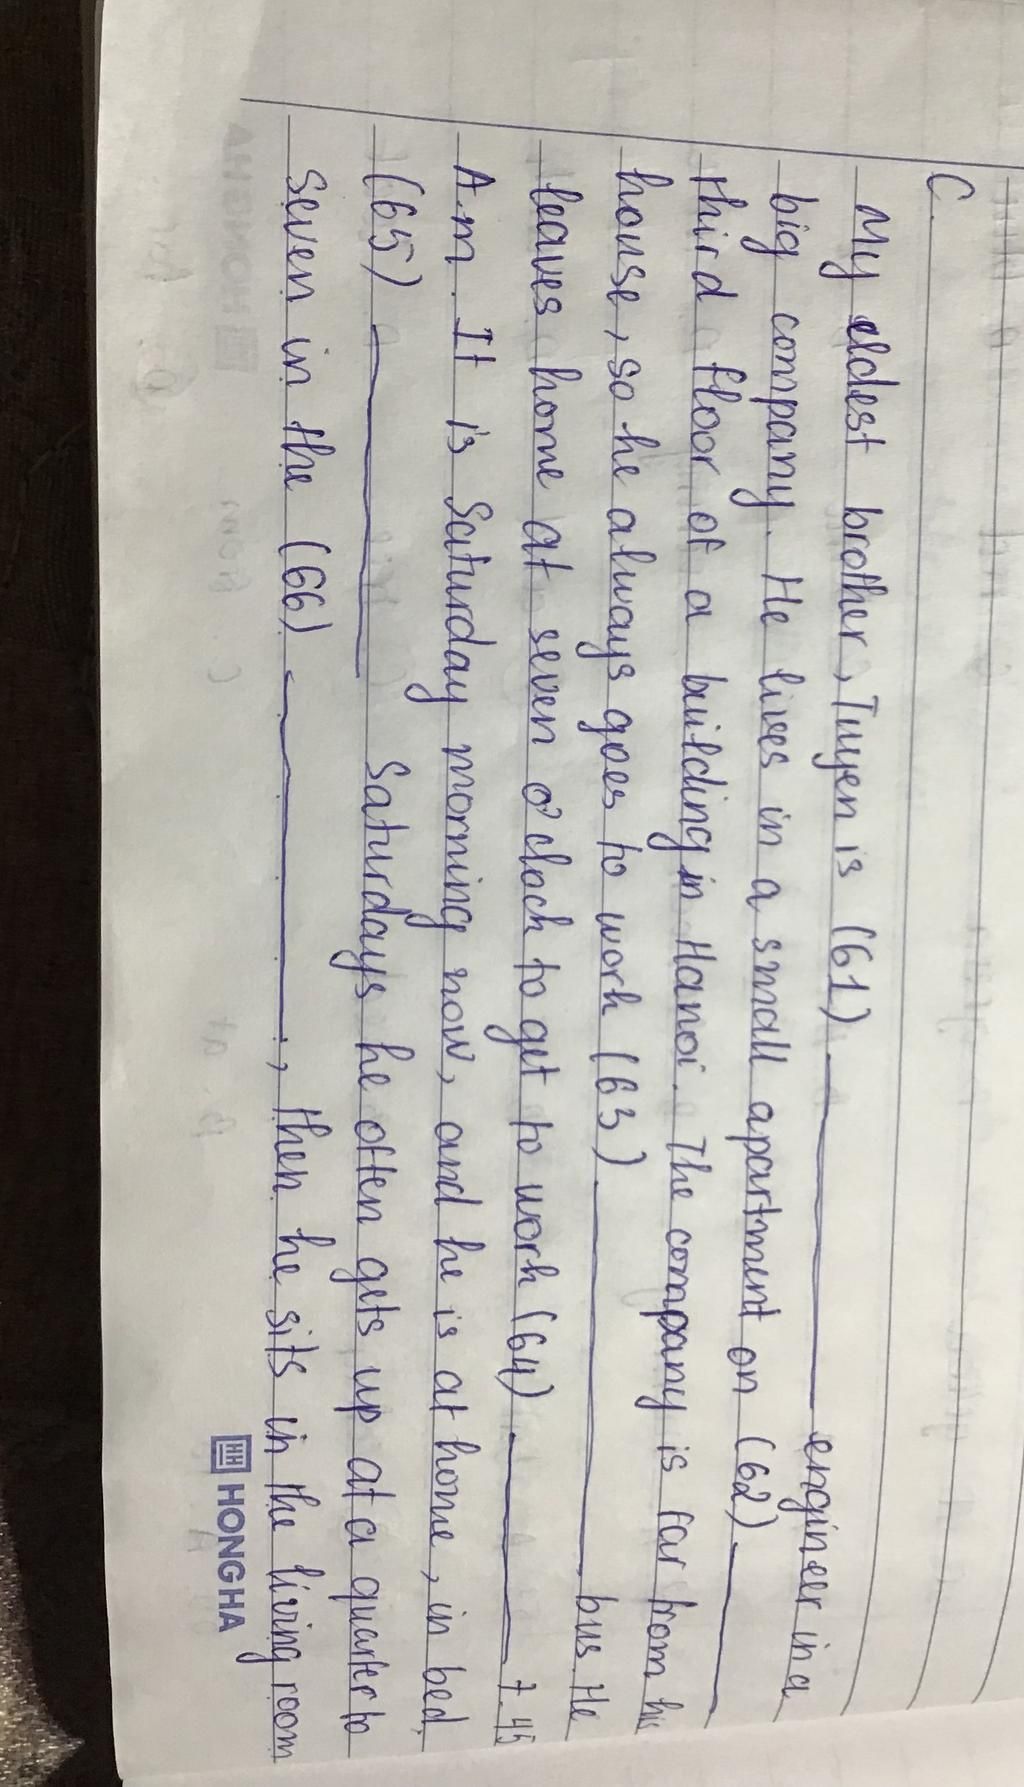 C.
My eldest brother, Tuyen is (61) ________ engineer in a
big company. He lives in a small apartment on (62) ________
third floor of a building in Hanoi. The company is far from his
house, so he always goes to work (63) ________ bus. He
leaves home at seven o'clock to get to work (64) ________ 7.45
A.m. It is Saturday morning now, and he is at home, in bed.
(65) ________ Saturdays he often gets up at a quarter to
seven in the (66) ________, then he sits in the living room
HH HONG HA